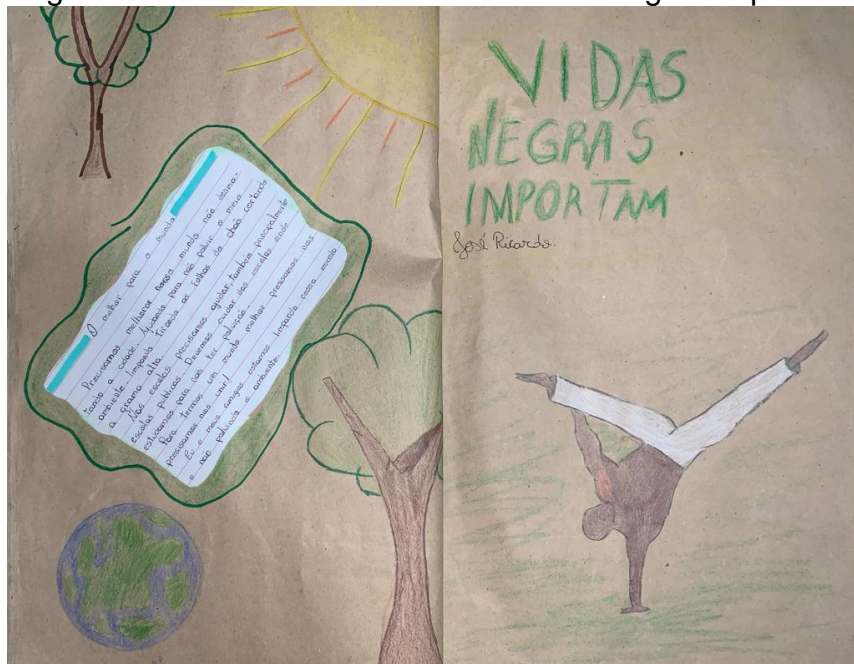 O melhor para o mundo
Precisamos melhorar nosso mundo não desma-
tando a cidade. Ajudando para não poluir o meio
ambiente. limpando Tirando as folhas do chão cortando
a grama alta.
Nas escolas precisamos ajudar, também principalmente
escolas publicas. Devemos cuidar das escolas onde
estudamos para não ter poluição.
Para termos um mundo melhor pressamos nas
presisamos nos unir!
Eu e meus amigos estamos limpando nosso mundo
e não poluindo o ambiente.
VIDAS
NEGRAS
IMPORTAM
José Ricardo.